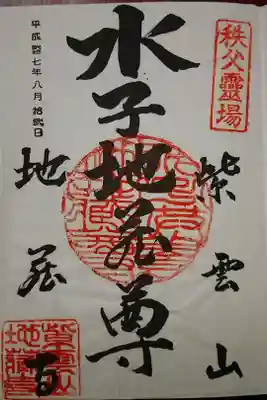 秩父靈場
紫雲山
水子地蔵尊
地蔵寺
平成七年八月拾弐日
紫雲山
地蔵寺